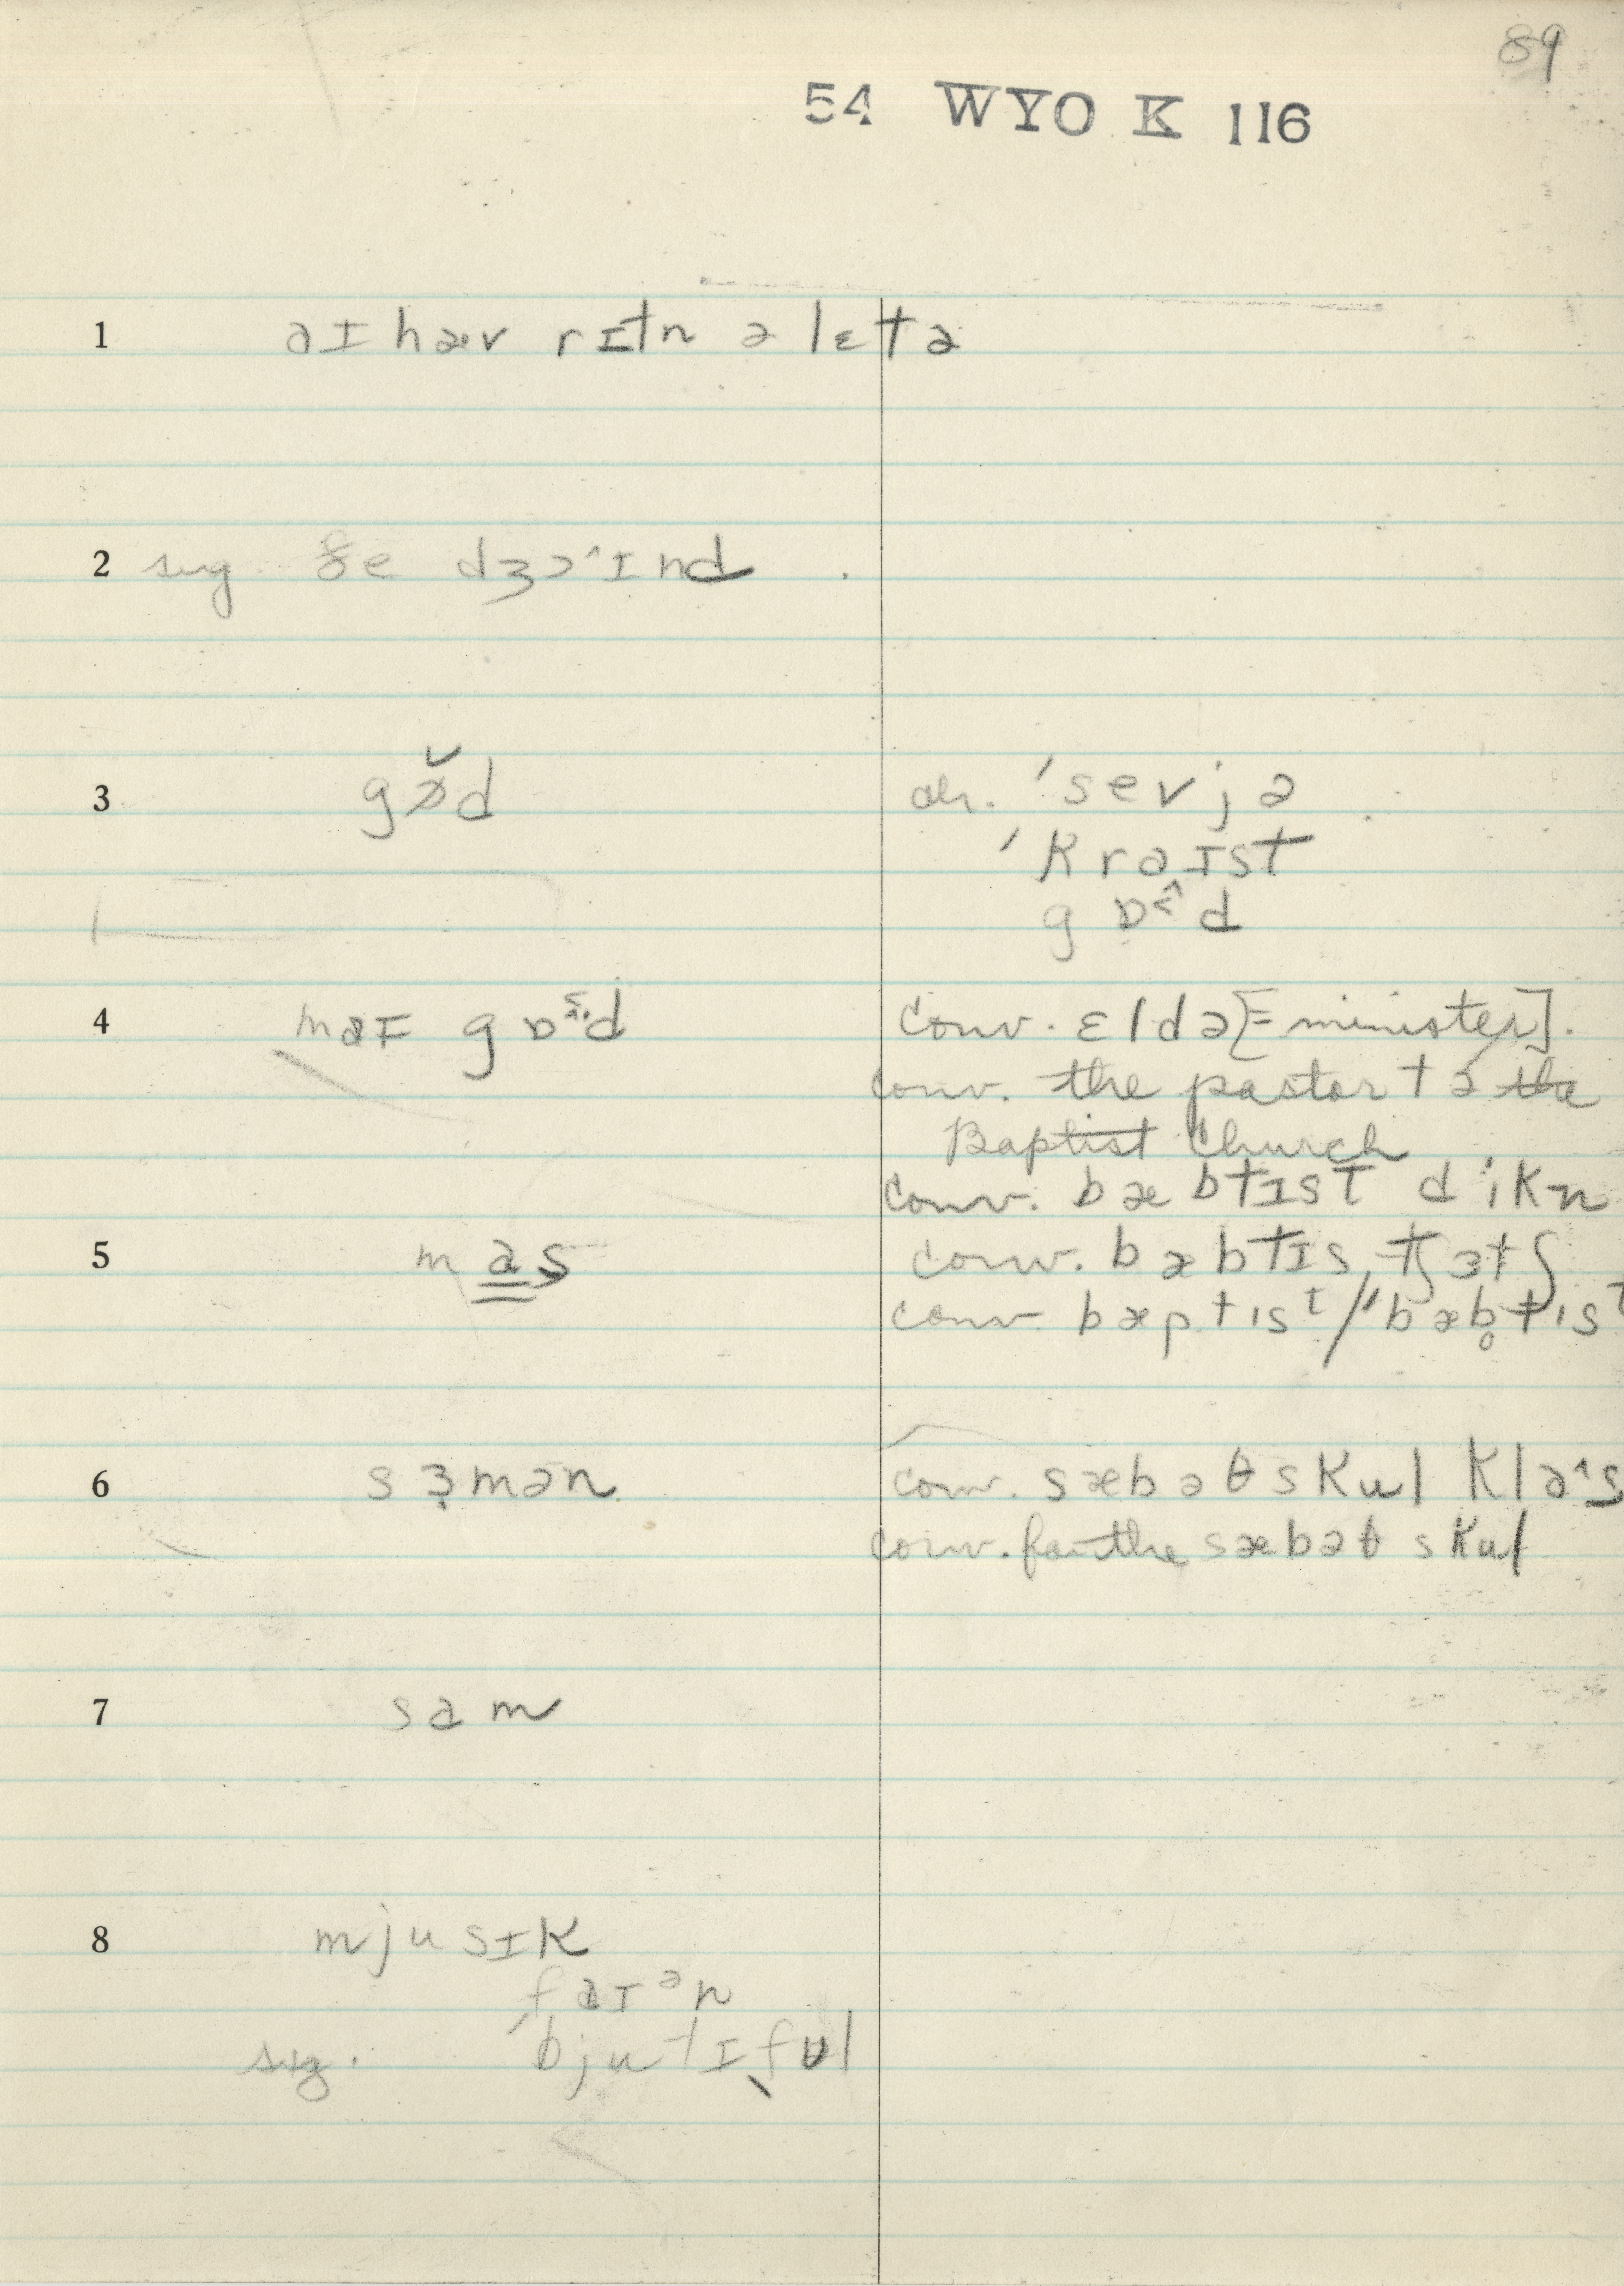 89
54 WYO K 116
1 aɪ hæv rɪtn ə lɛtə
2 sug ðe dʒɔ˄ɪnd
3 gɒ̆d ch. ˈsevjə
ˈkraɪst
gɒd
4 maɪ gɒd conv. ɛldə [= minister].
conv. the pastor tə the
Baptist Church
conv. bæbtɪst dikn
5 mas conv. bæbtɪs tʃɜtʃ
conv. bæptɪsᵗ // bæb̥tɪsᵗ
6 sɜ̣mən conv. sæbəθ skul kla˄s
conv. for the sæbəθ skul
7 sam
8 mjusɪk
faɪᵊn
sug. ˈbjutɪˌfʊl